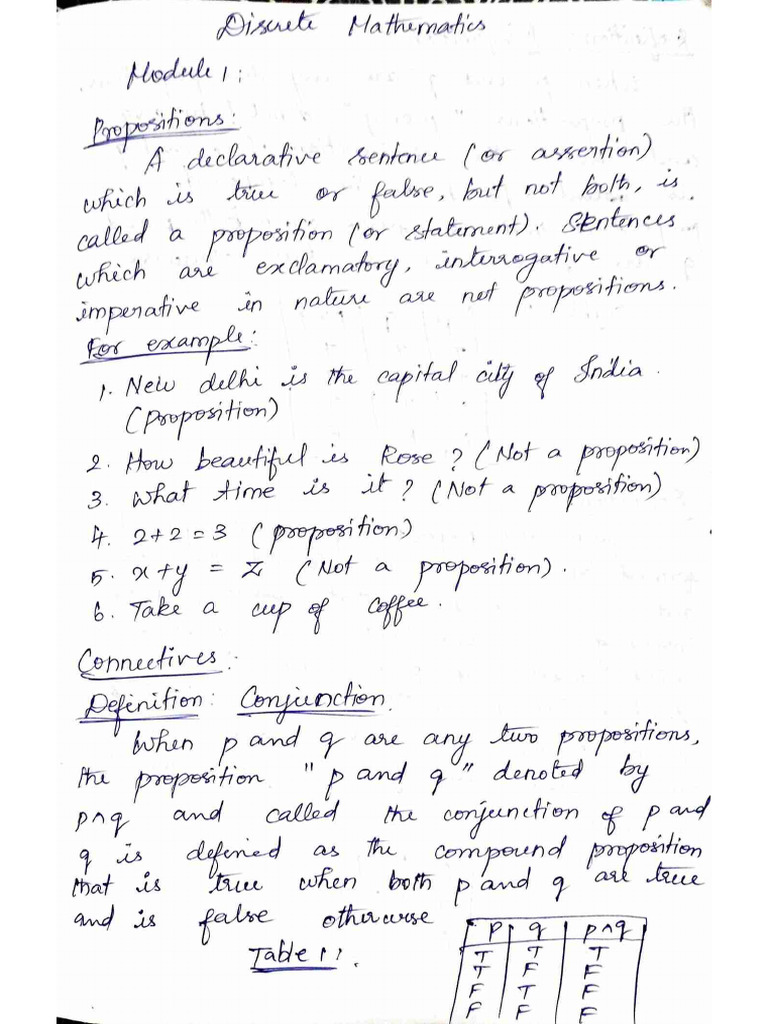 Discrete Mathematics
Module 1:
Propositions:
A declarative sentence (or assertion)
which is true or false, but not both, is
called a proposition (or statement). Sentences
which are exclamatory, interrogative or
imperative in nature are not propositions.
For example:
1. New delhi is the capital city of India.
(proposition)
2. How beautiful is Rose? (Not a proposition)
3. What time is it? (Not a proposition)
4. 2+2=3 (proposition)
5. x+y = z (Not a proposition).
6. Take a cup of coffee.
Connectives:
Definition: Conjunction.
When p and q are any two propositions,
the proposition "p and q" denoted by
p∧q and called the conjunction of p and
q is defined as the compound proposition
that is true when both p and q are true
and is false otherwise
Table 1:
p q p∧q
T T T
T F F
F T F
F F F